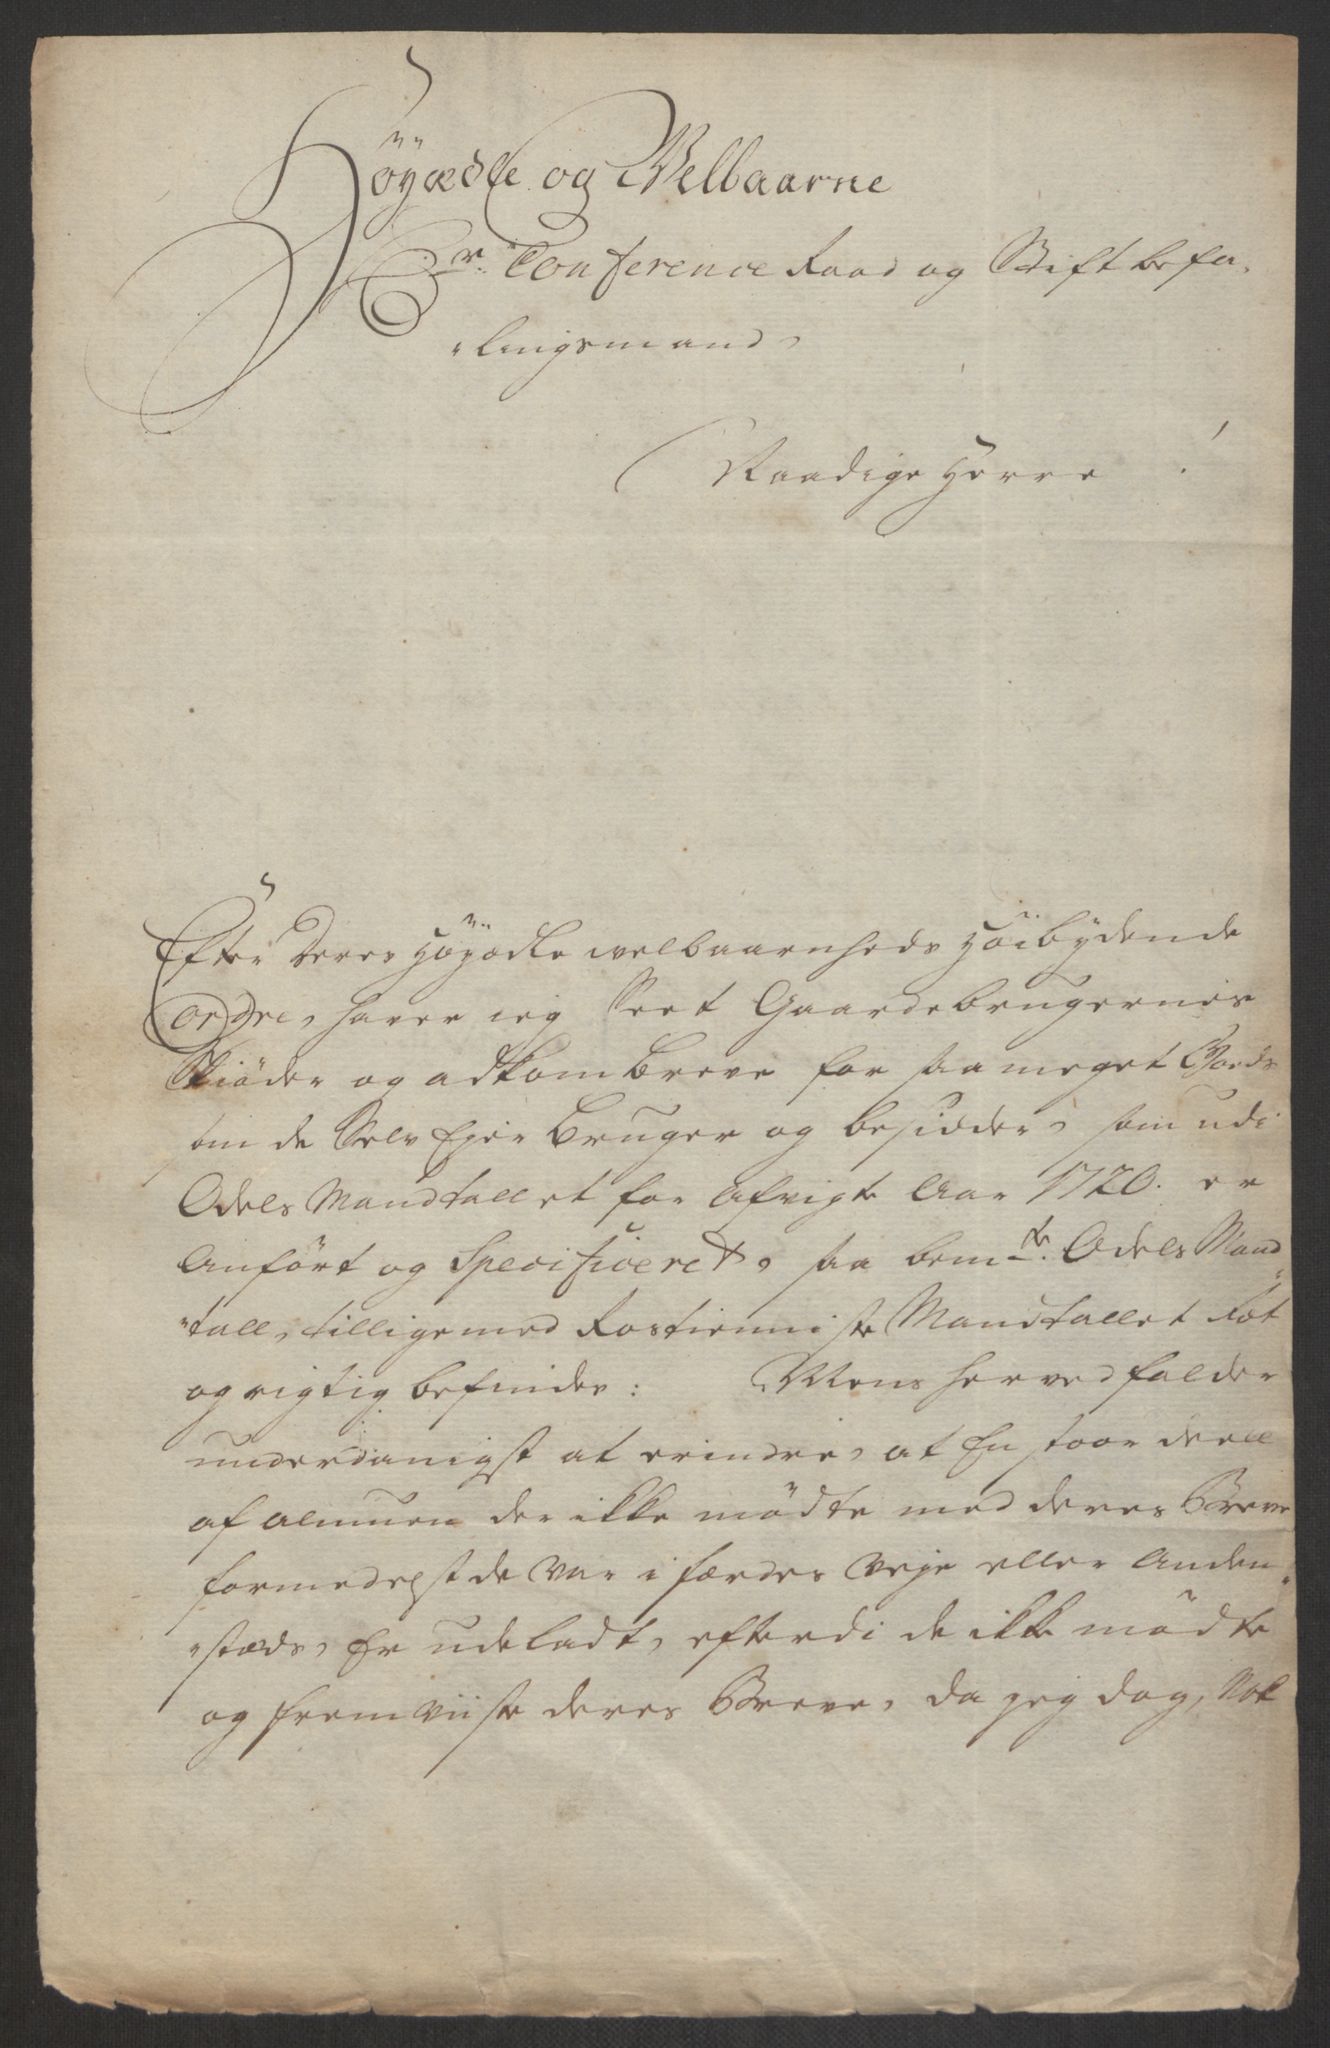 Höyædle og Welbaarne
Hr. Conference Raad og Stiftbefa-
-lingsmand,
Naadige Herre !
Efter Deres Höyædle welbaarenheds Höibydende
Ordre, haver ieg Seet Gaardebrugernis
Skiöder og adkombreve for saa meget Goeds
som de Selv Ejer Bruger og besidder, som udi
Odels Mandtallet for Afvigte Aar 1720. er
Anfört og Specificeret, saa bemte. Odels Mand-
-tall, tilligemed Rostienniste Mandtallet Ret
og rigtig befindes: Mens herved falder
underdanigst at erindre, at En stoor deell
af almuen der ikke mödte med deres Breve
formedelst de var i færdes Veje eller Anden-
-stæds, Er udeladt, efterdi de ikke mödte
og fremviiste deres Breve, da jeg dog, Nok